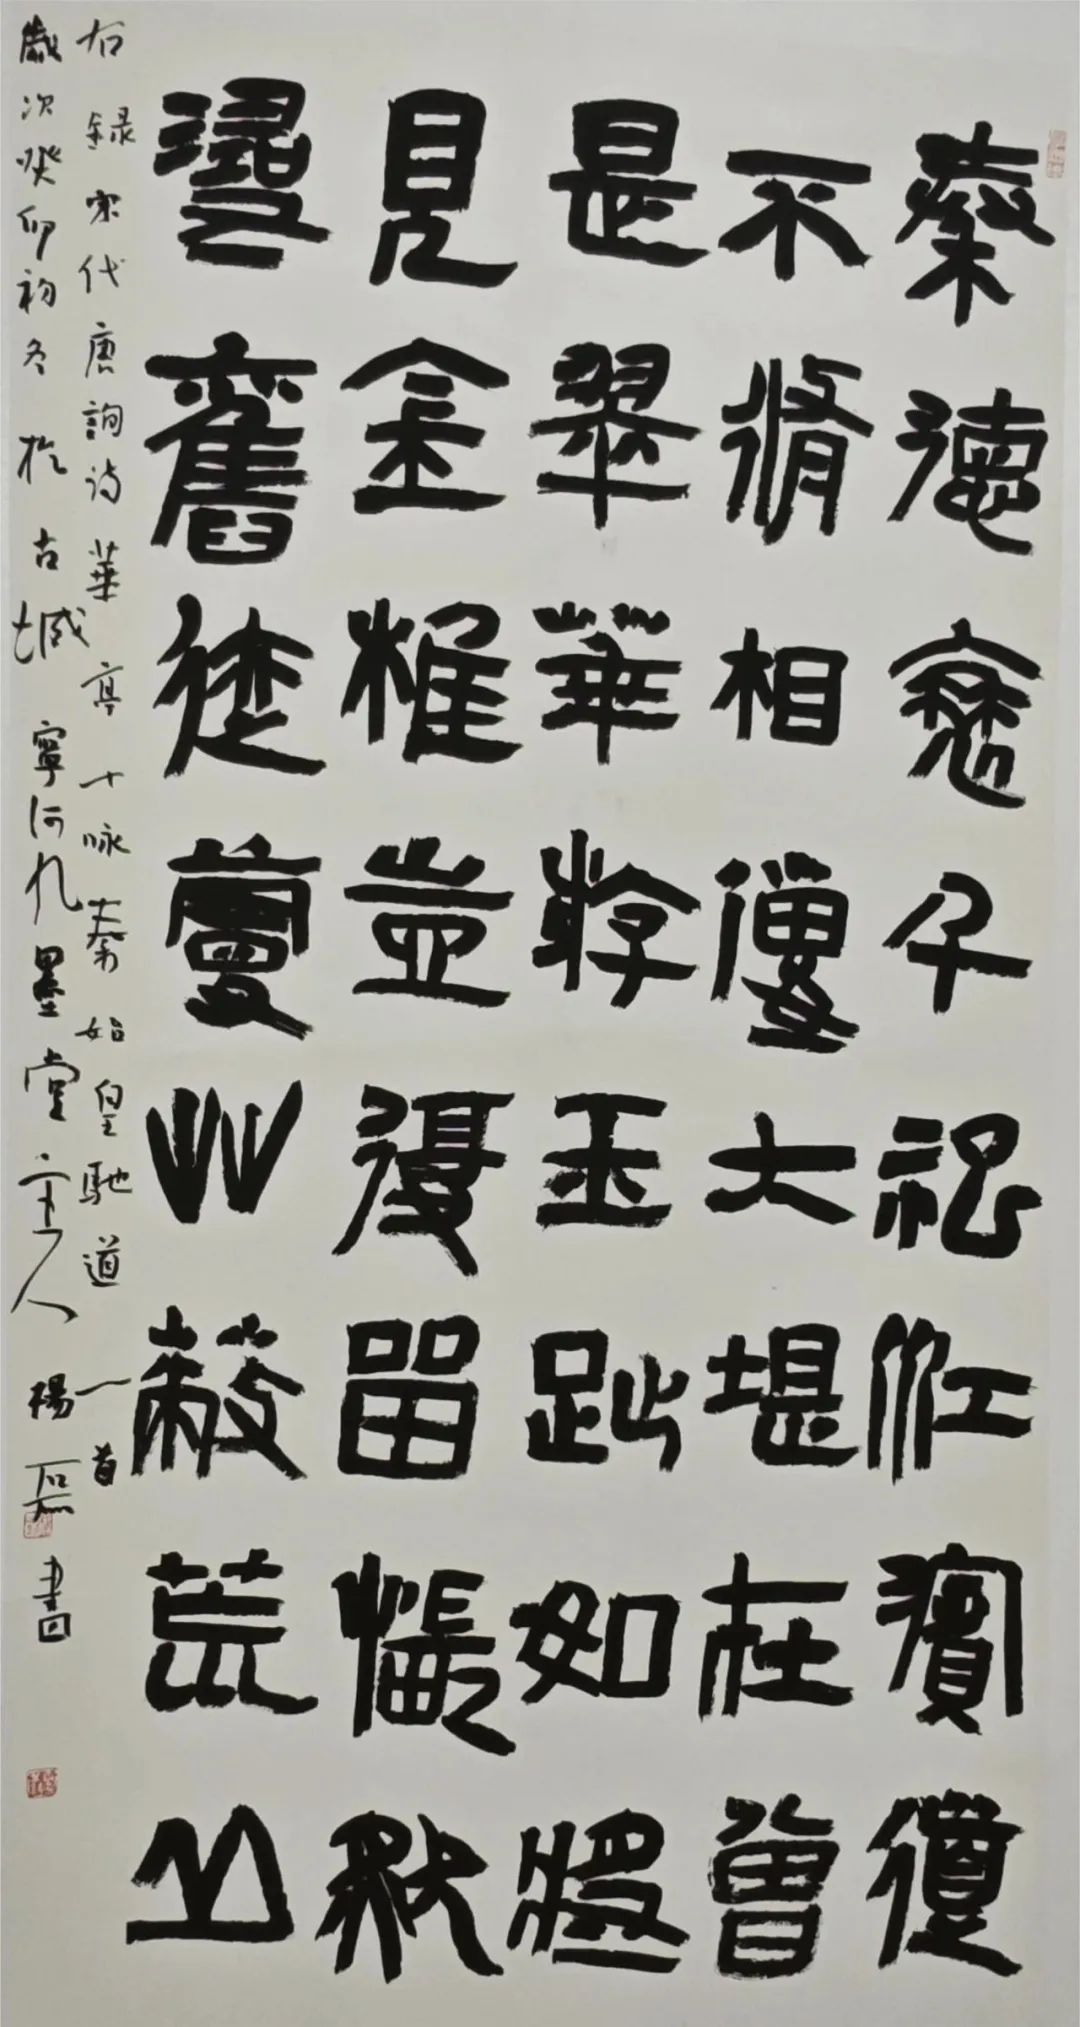 秦德衰千祀江濱道
不脩相傳大堤在曾
是翠華斿玉趾如將
見金椎豈復留悵然
尋舊迹蔓艸蔽荒丘
右録宋代唐詢詩華亭十咏秦始皇馳道一首
歲次癸卯初冬於古城寧河九墨堂主人楊磊書